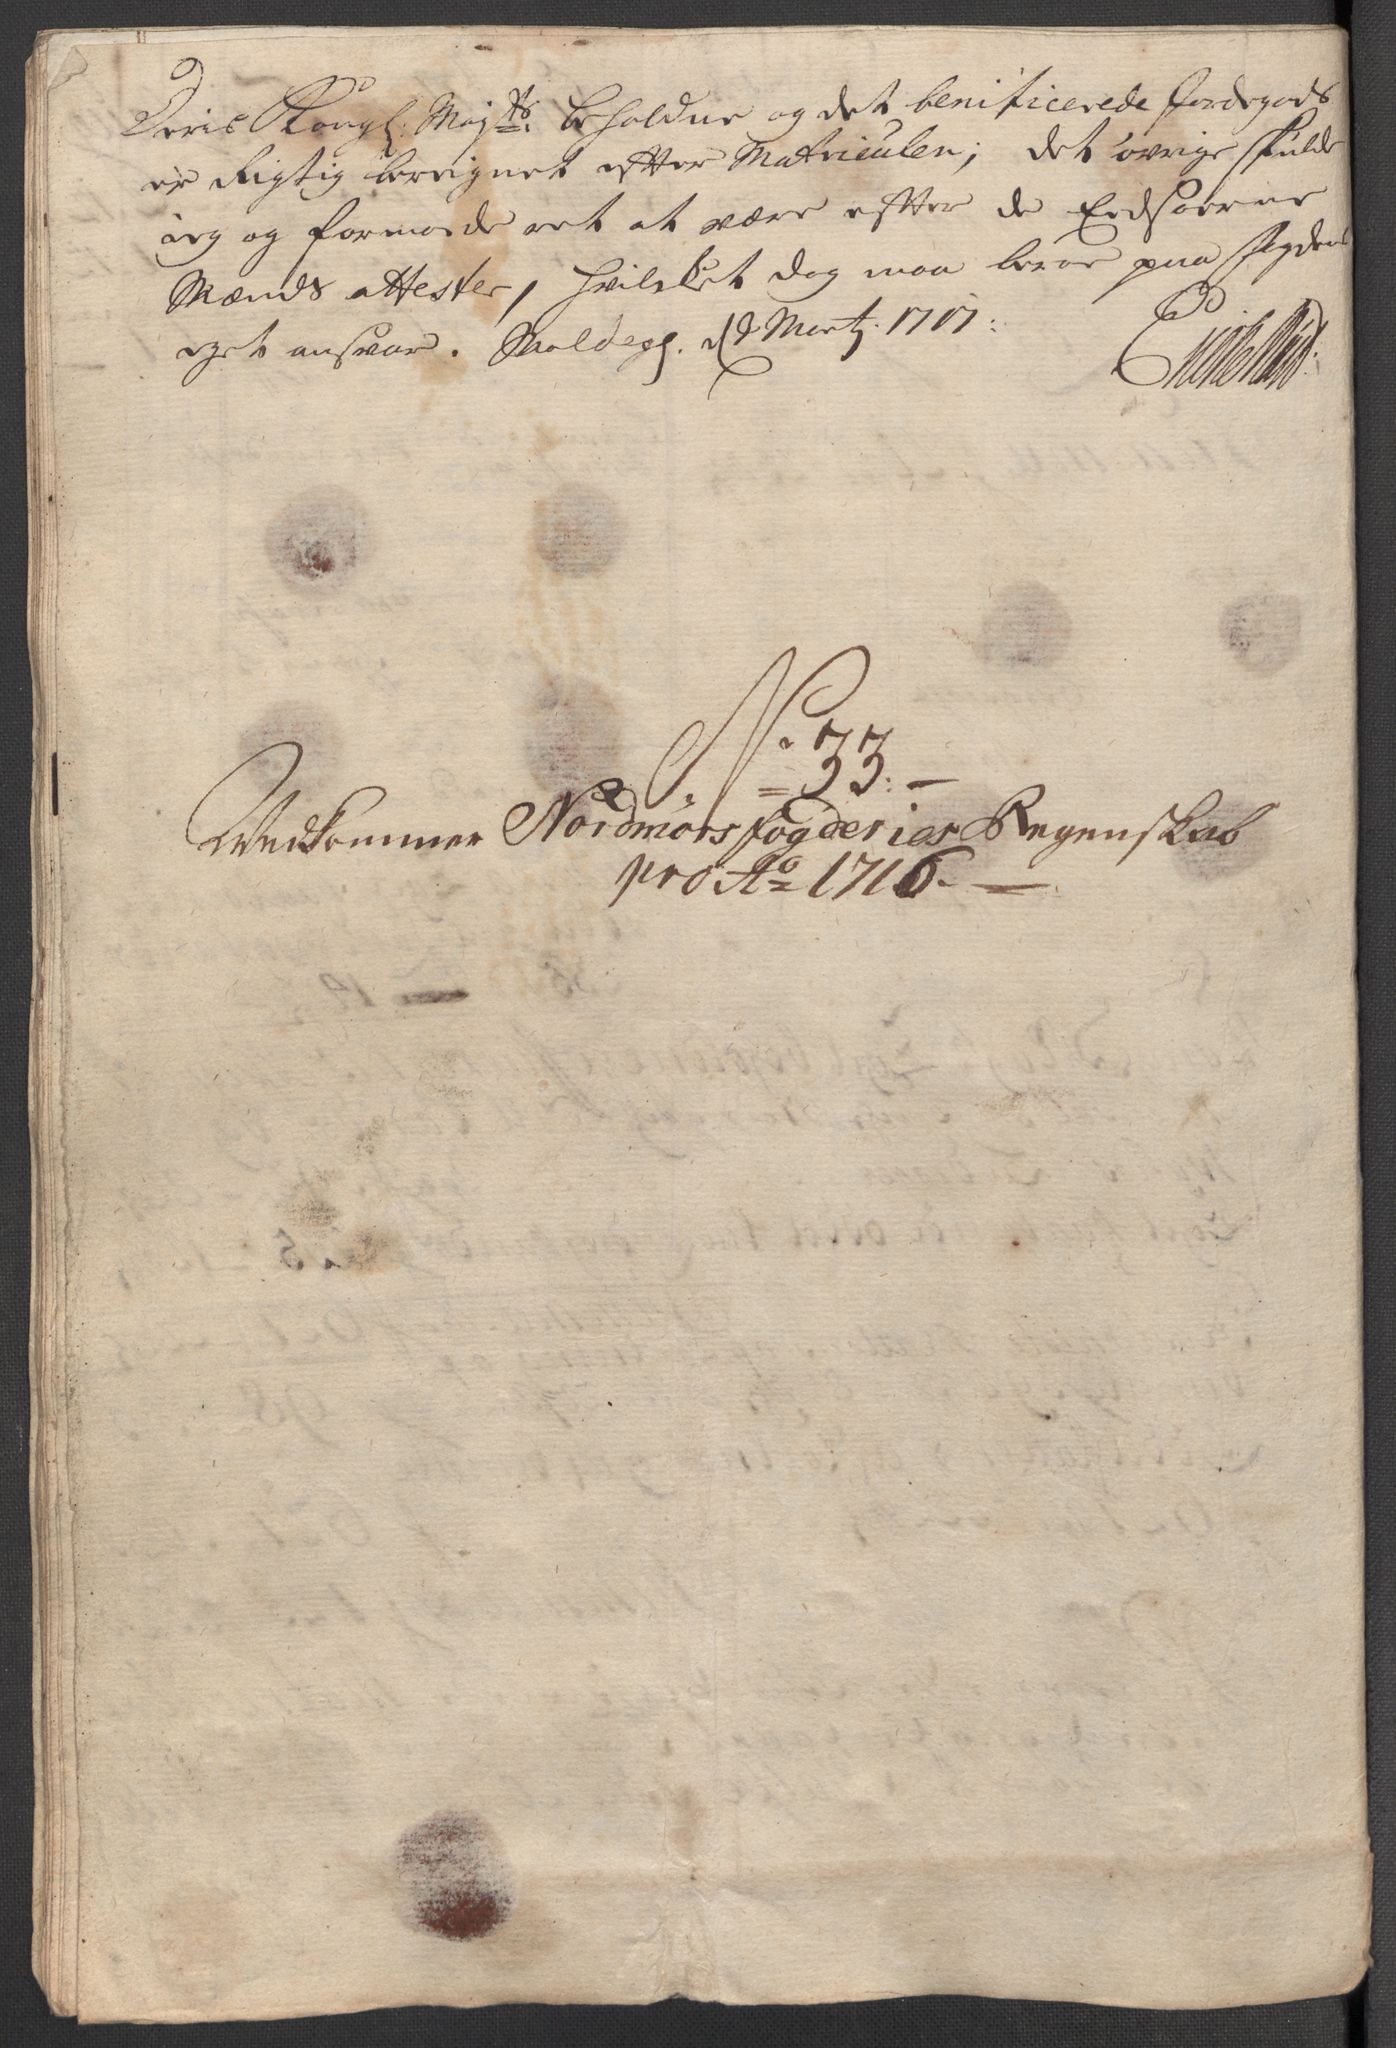 Deris Kongl: Maj:ts beholdne og det benificerede Jordegods
er Rigtig beregnet efter Matriculen; det øvrige skulde
ieg og formode ret at være efter de Eedsvorne
Mænds attester, hvilcket dog maa beroe paa Fogdens
eget ansvar. Moldeg. d Martj. 1717:
No. 33.
Vedkommer Nordmørs fogderies Regenskab
pro Ao 1716.